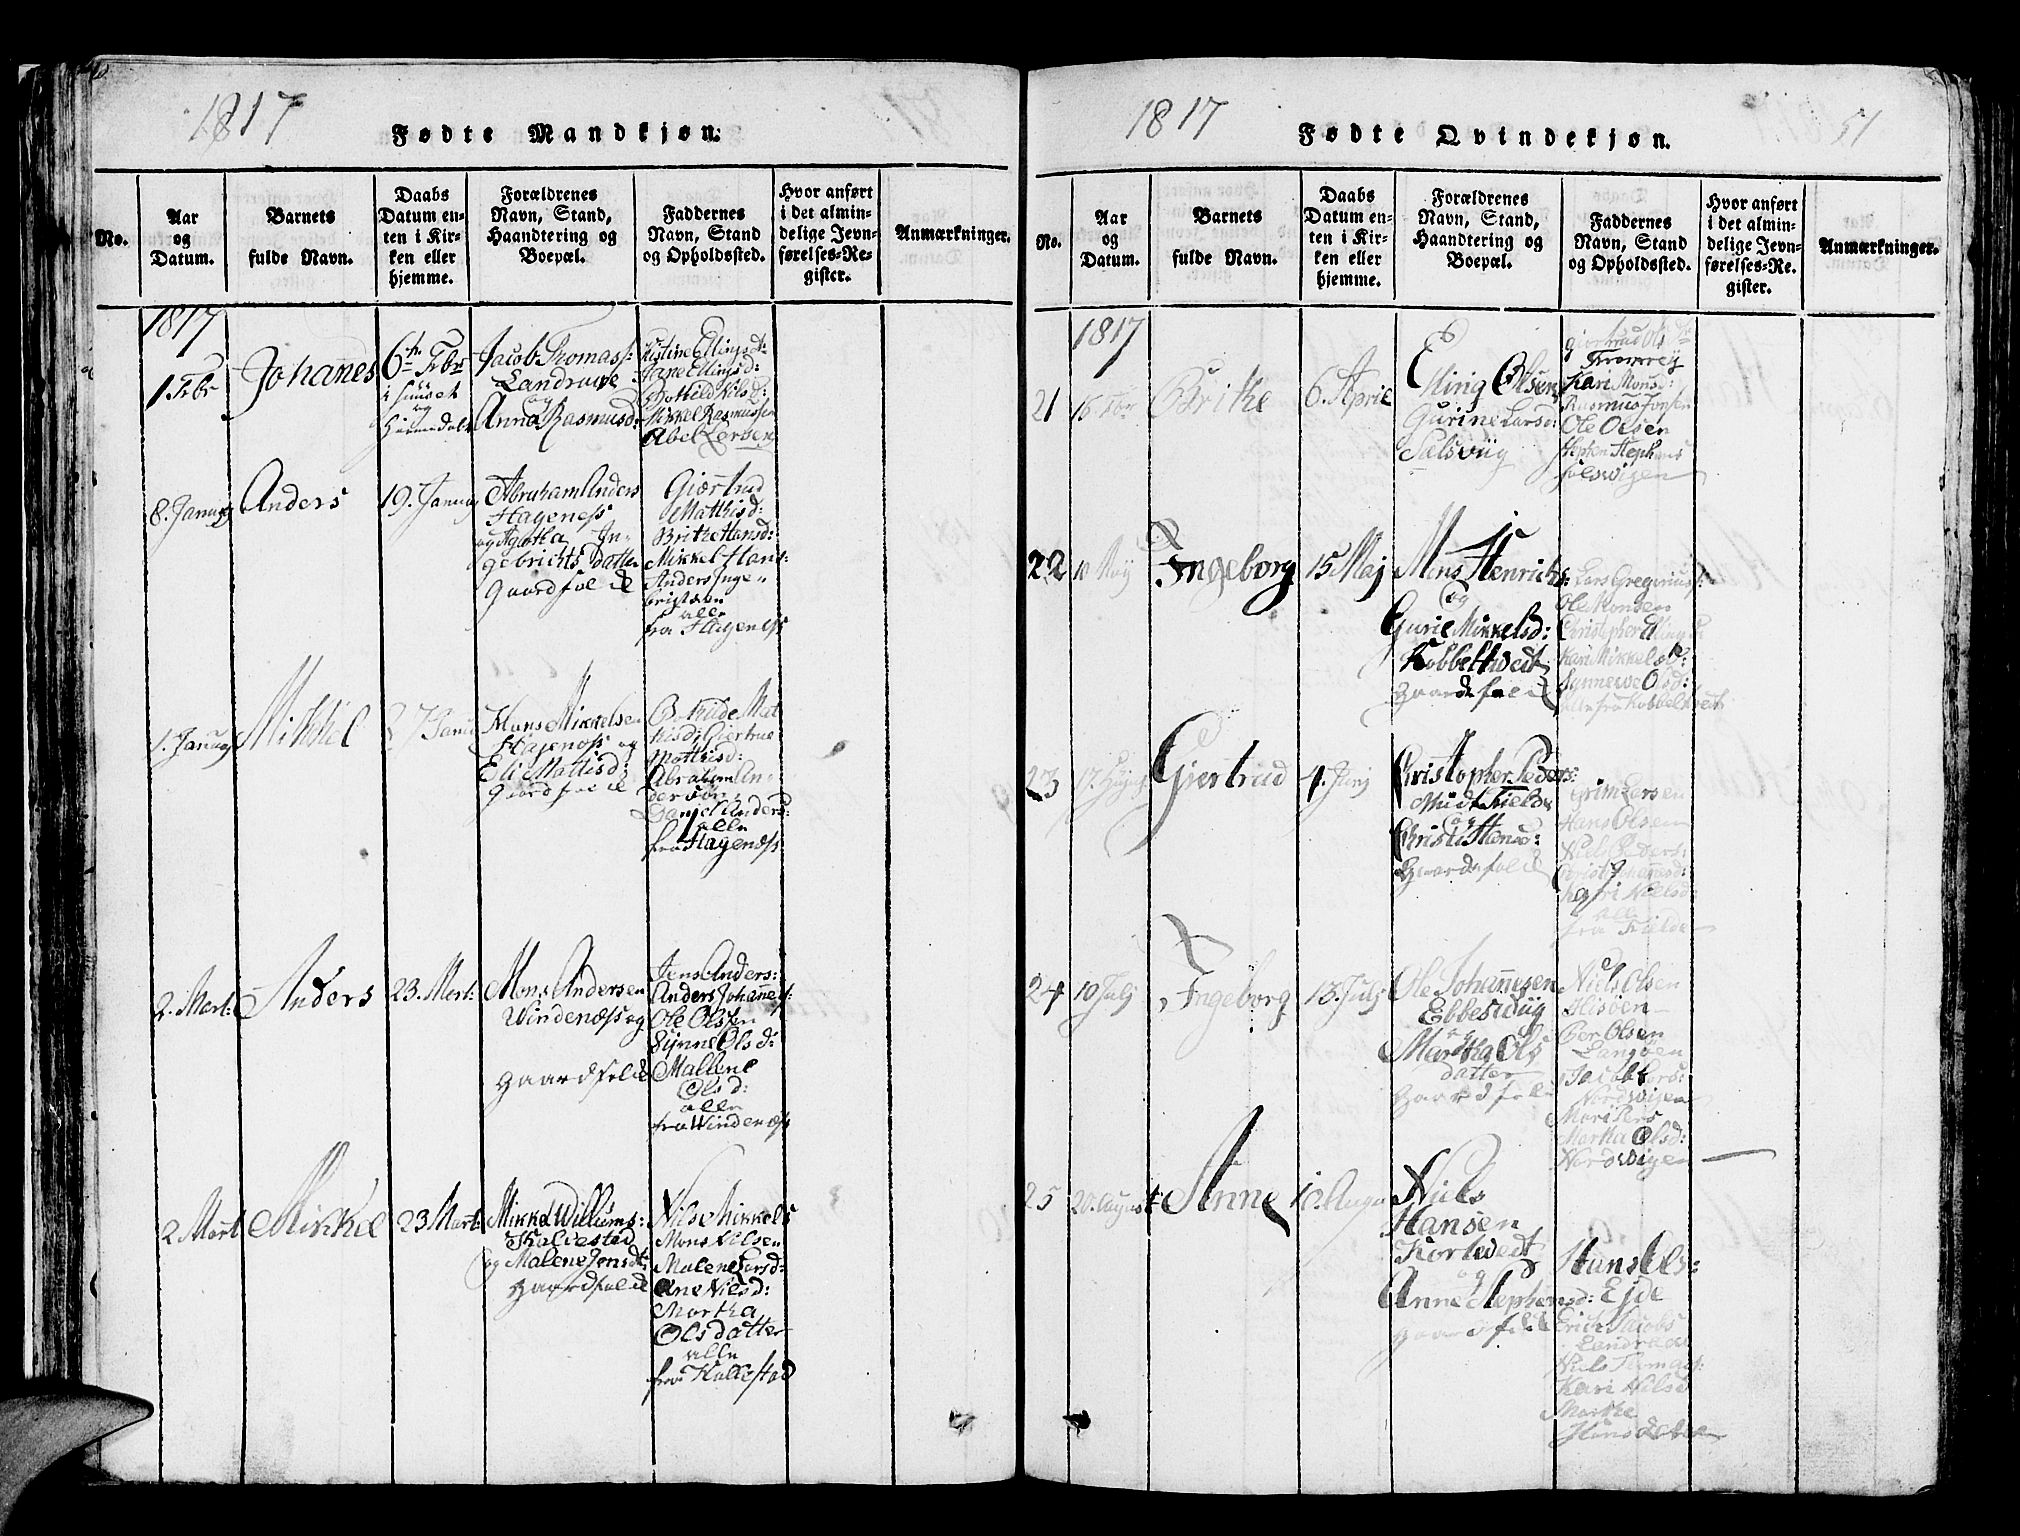 1817
Fødte Mandkjøn.
No.
Aar
og
Datum.
Barnets
fulde Navn.
Daabs
Datum en-
ten i Kir-
ken eller
hjemme.
Forældrenes
Navn, Stand,
Haandtering og
Boepæl.
Faddernes
Navn, Stand
og Opholdssted.
Hvor anført
i det almin-
delige Jevn-
førelses-Re-
gister.
Anmærkninger.
1817
1 Febr
Johañes
6te Febr
i Huuset
og
Jacob Thomas:
Landrawe
og
Anna Rasmusd:
Kistine Ellingsdt:
Bothild Nilsd:
Mikkel Rasmussen
Abel Larsen
8. Januar
Anders
19. Januar
Abraham Anders
Hageness
og Agatha In-
gebrichts Datter
Gaardfolck
Giærtrud
Mathisd:
Brithe Hansd:
Mikkel Hans:
Anders Inge-
brigtsen
alle
fra Hageness
1. Januar
Mikkel
27 Janu
Hans Mikkelsen
Hageness og
Eli Mattisd:
Gaardfolck
Botilde Mat
hisd: Giertrue
Mathisd:
Abraham An-
dersøn
Daniel Anders:
alle
fra Hageness
2. Mart:
Anders
23. Mert:
Mons Andersen
Windenæss og
Gaardfolck
Jens Anders:
Anders Johañes:
Ole Olssen
Synne Olsd:
Mallene
Olsd:
alle
fra Windenæss
2 Mart
Mikkel
23 Mart:
Mikkel Willums:
Kallestad
og Malene Jensdt:
Gaardfolck
Nils Mikkels
Mons Nilsen
Malene Larsd:
Ane Nilsd:
Martha
Olsdatter
alle
fra Kallestad
1817
51
Fødte Qvindekjøn.
No.
Aar
og
Datum.
Barnets
fulde Navn.
Daabs
Datum en-
ten i Kir-
ken eller
hjemme.
Forældrenes
Navn, Stand,
Haandtering og
Boepæl.
Faddernes
Navn, Stand
og Opholdssted.
Hvor anført
i det almin-
delige Jevn-
førelses-Re-
gister.
Anmærkninger.
1817
21
Brithe
6. April
Elling Olsen
Gurine Larsd:
Sælsviig
Giertrud Ols
Kari Monsd:
Rasmus Jonsen
Ole Olsen
Stephen Stephens
22
10 Maij
Ingeborg
15 Maj
Mons Henrichs:
og
Gurie Mikkelsd:
Kobbeltwedt
Gaardfolck
Lars Gregorius:
Ole Monsen
Christopher Ellings
Kari Mikkelsd:
Synnewe Olsd:
alle fra Kobbeltvedt
23
Giertrud
Christopher Peders:
Midtfield
og
Christi Hansd:
Gaardsfolck
Grim Larsen
Hans Olsen
Niels Peders:
Christi Johañesd:
Nielsd
alle
fra Fielde
24
10 July
Ingeborg
13. July
Ole Johannesen
Ebbeswiig
og
Martha Ols
datter
Gaardfolck
Niels Olsen
Hisøen
Per Olsen
Langøen
Jacob Lars:
Nordwigen
Mari Pers
Martha Olsd:
Nordwigen
25
20. August
Anne
Niels
Hansen
Kortvedt
og
Anne Stephensd:
Gaardfolck
Hans Ols:
Ejde
Erich Jacobs
Landrawe
Niels Thomas:
Kari Nilsd
Marthe
Hansdatter